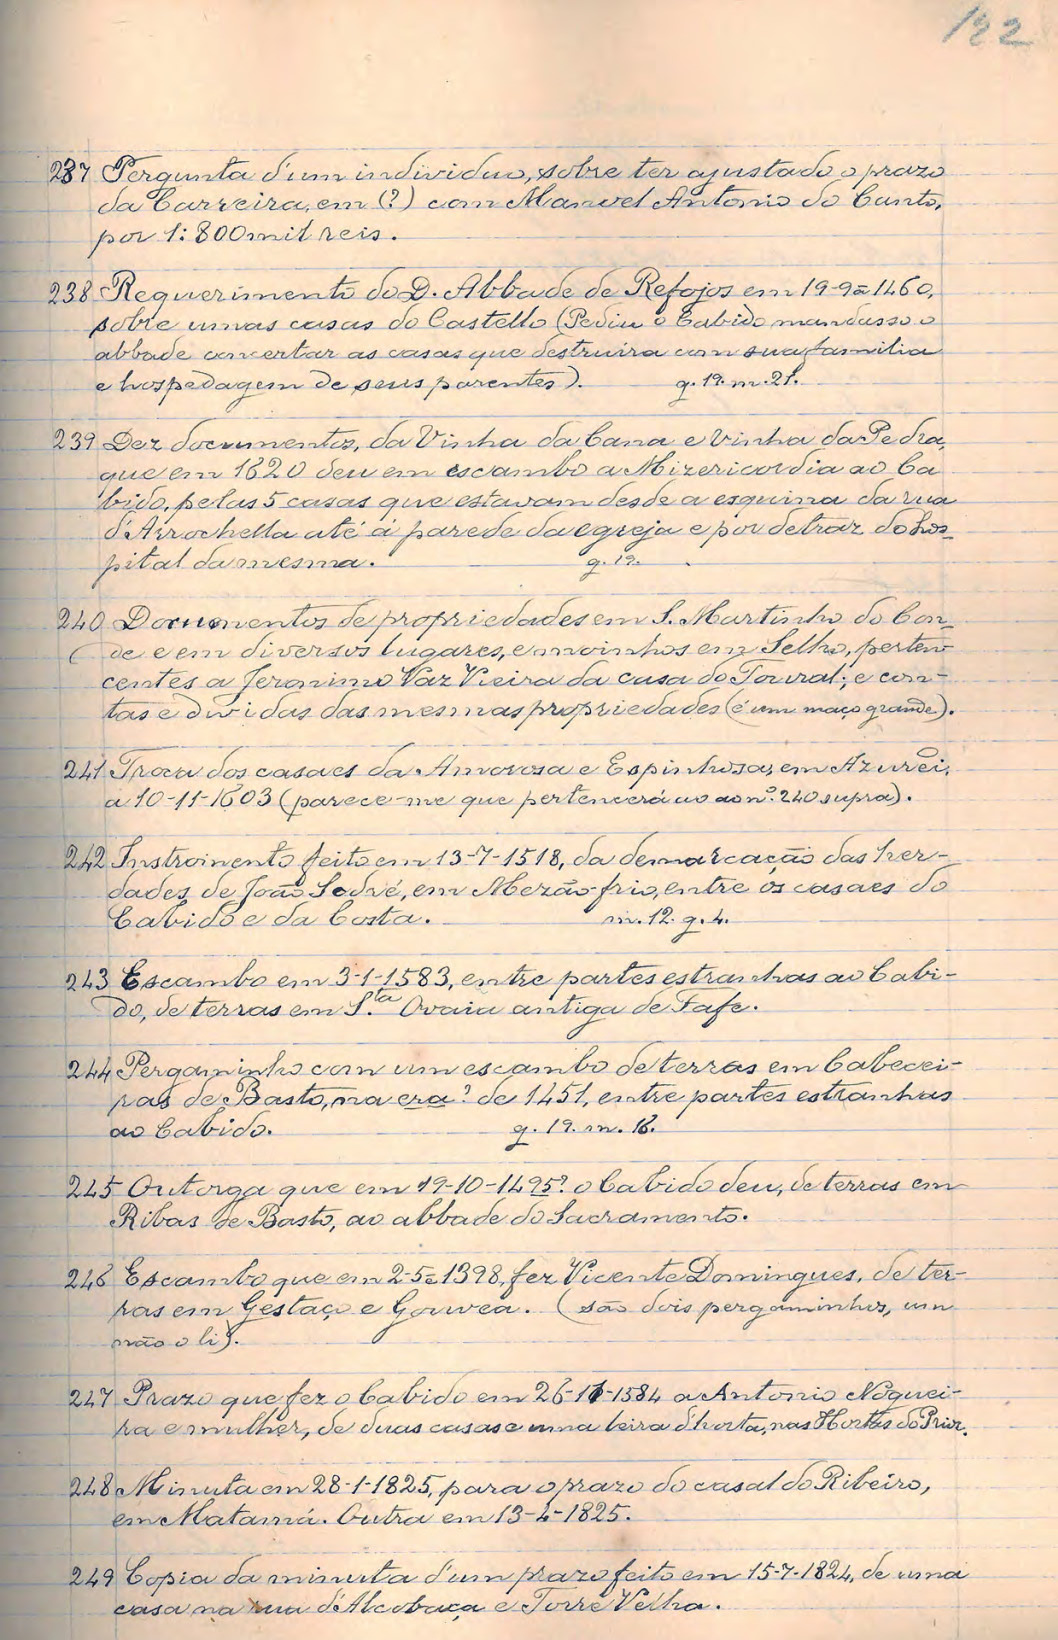 122
237 Pergunta d'um individuo, sobre ter ajustado o prazo
da Carreira, em (?) com Manoel Antonio do Canto,
por 1:800 mil reis.
238 Requerimento do D. Abbade de Refojos em 19-9-1460,
sobre umas casas do Castello (Pediu o Cabido mandasse o
abbade concertar as casas que destruira com sua familia
e hospedagem de seus parentes). g. 19. m. 21.
239 Dez documentos, da Vinha da Cana e Vinha da Pedra,
que em 1620 deu em escambo a Mizericordia ao Ca
bido, pelas 5 casas que estavam desde a esquina da rua
d'Arrochella até á parede da egreja e por detraz do hos_
pital da mesma. g. 19.
240 Documentos de propriedades em S. Martinho do Con_
de e em diversos lugares, e moinhos em Selho, perten
centes a Jeronimo Vaz Vieira da casa do Toural; e con-
tas e dividas das mesmas propriedades (é um maço grande).
241 Troca dos casaes da Amorosa e Espinhosa, em Azurei,
a 10-11-1603 (parece-me que pertencerá ao nº. 240 supra).
242 Instromento feito em 13-7-1518, da demarcação das her-
dades, de João Sodré, em Mezão-frio, entre os casaes do
Cabido e da Costa. m. 12. g. 4.
243 Escambo em 3-1-1583, entre partes estranhas ao Cabi-
do, de terras em S.ta Ovaia antiga de Fafe.
244 Pergaminho com um escambo de terras em Cabecei-
ras de Basto, na era? de 1451, entre partes estranhas
ao Cabido. g. 19. m. 16.
245 Outorga que em 19-10-1495? o Cabido deu, de terras em
Ribas de Basto, ao abbade do Sacramento.
246 Escambo que em 2-5-1398, fez Vicente Domingues, de ter-
ras em Gestaço e Gouvea. (são dois pergaminhos, um
não o li).
247 Prazo que fez o Cabido em 26-11-1584 a Antonio Noguei-
ra e mulher, de duas casas e uma leira d'horta, nas Hortas do Prior.
248 Minuta em 28-1-1825, para o prazo do casal do Ribeiro,
em Matamá. Outra em 13-4-1825.
249 Copia da minuta d'um prazo feito em 15-7-1824, de uma
casa na rua d'Alcobaça e Torre Velha.